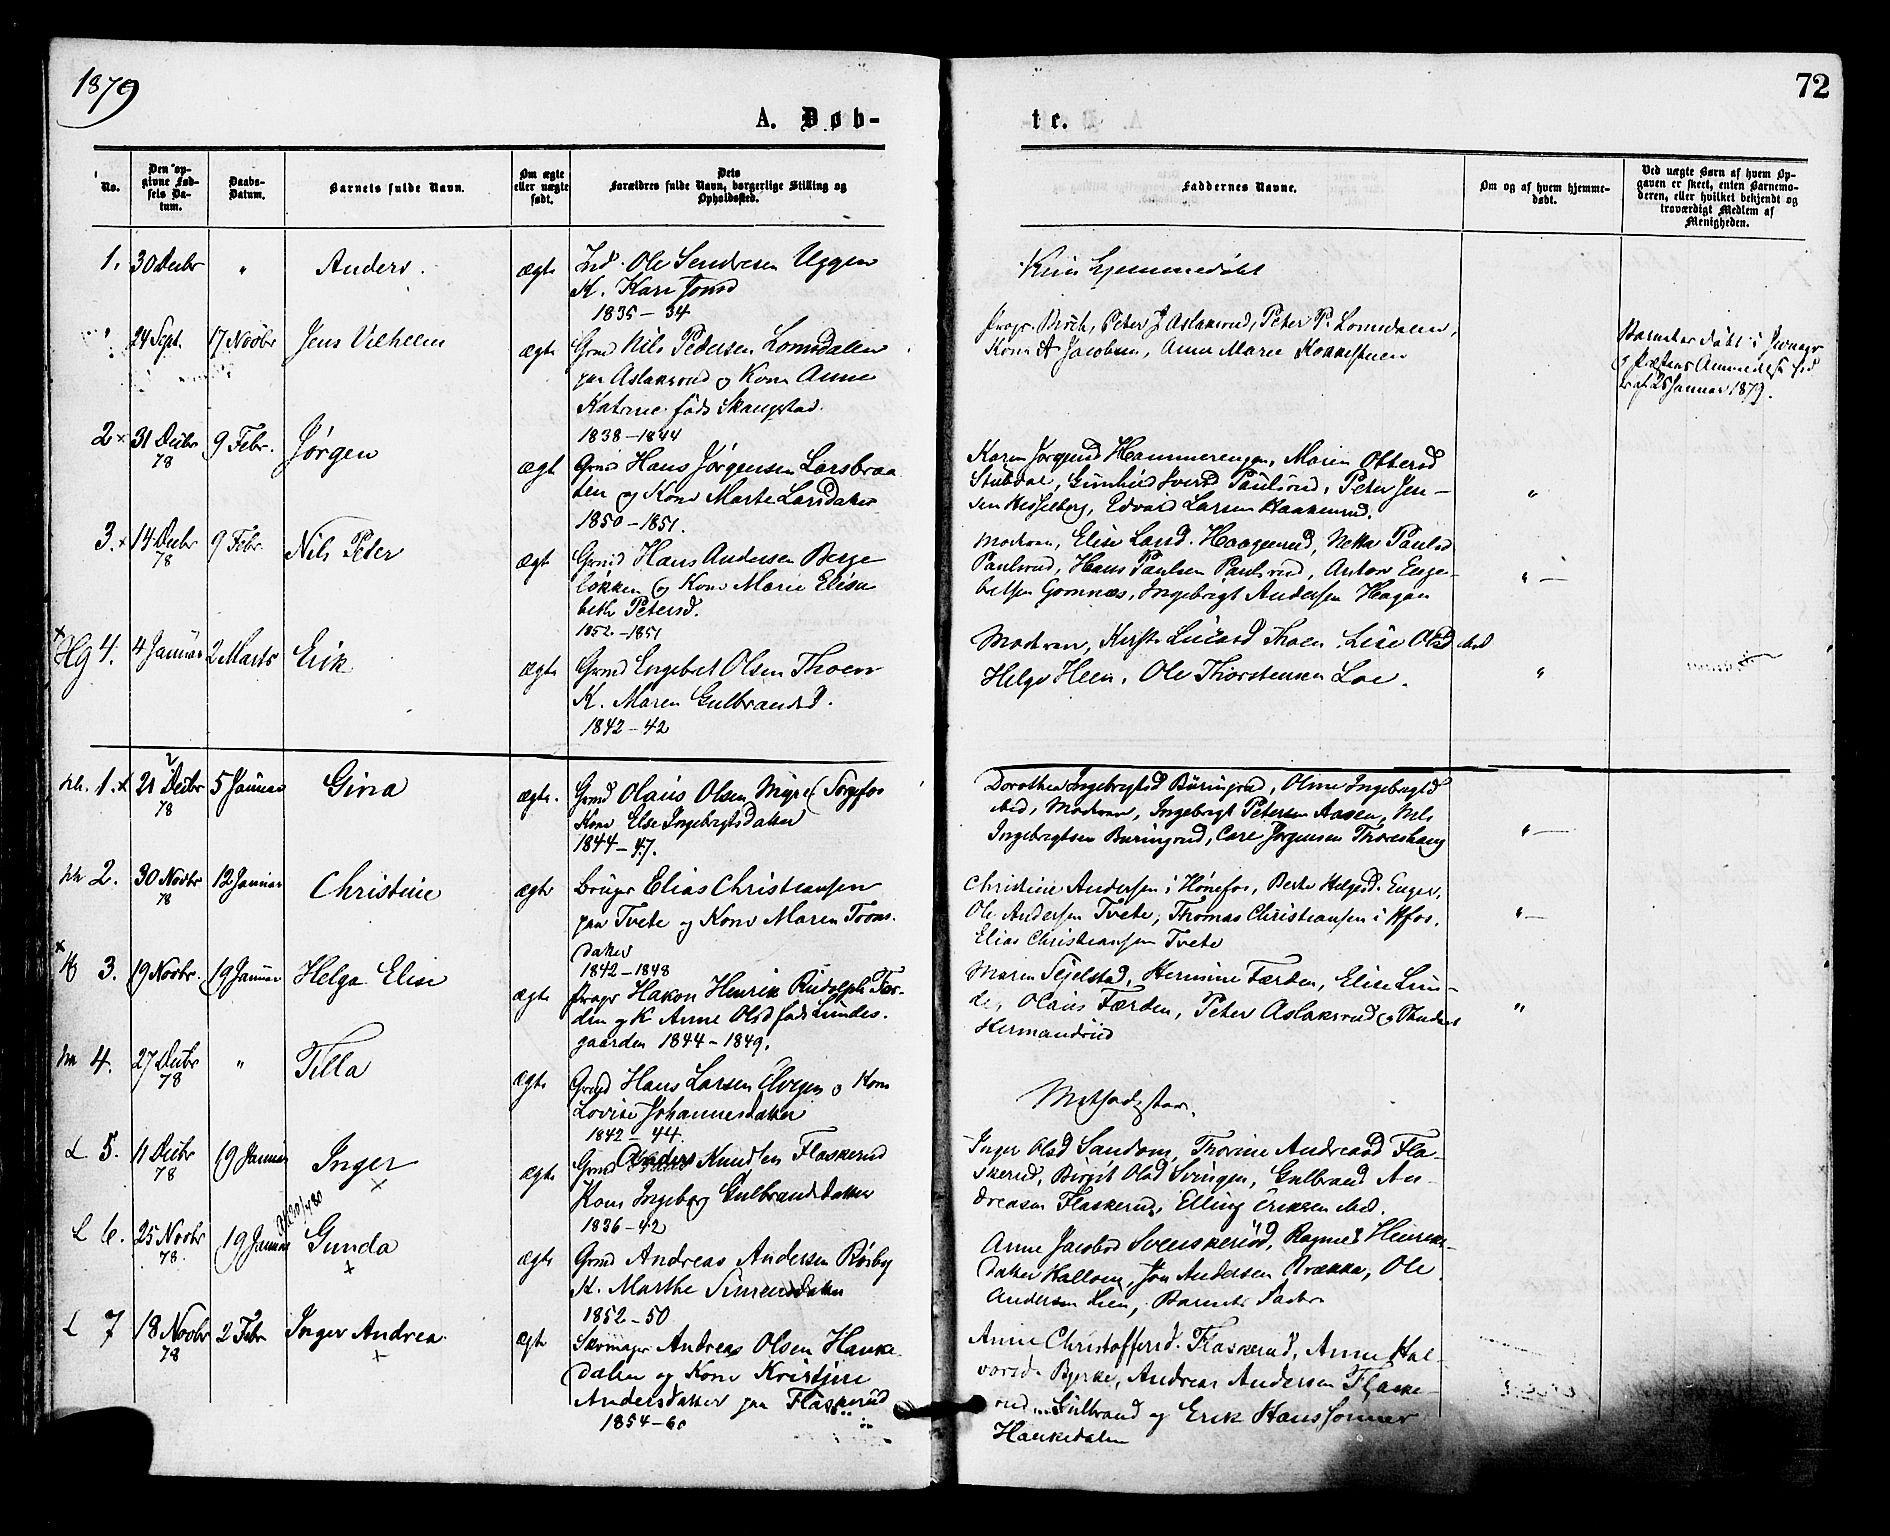 1879
72
A. Døb-
te.
No.
Den op-
givne Fød-
sels Da-
tum.
Daabs-
Datum.
Barnets fulde Navn.
Om ægte
eller uægte
født.
Dets
Forældres fulde Navn, borgerlige Stilling og
Opholdssted.
Faddernes Navne.
Om og af hvem hjemme-
døbt.
Ved uægte Børn af hvem Op-
gaven er skeet, enten Barnemo-
deren, eller hvilket bekjendt og
troværdigt Medlem af
Menigheden.
1. 30 Decbr " Anders. ægte
Ind. Ole Uggen
K. Kari Jonsd
1835 - 34
Kun hjemmedøbt
" 24 Sept. 17 Novbr Jens Vilhelm ægte
Grmd Nils Pedersen Lomsdalen
paa Aslaksrud og Kone Anne
Katrine født Skaugstad.
1838 - 1844
Peter J Aslaksrud, Peter P. Lomsdalen,
Kone A Jacobsen, Anne Marie
Barnet er døbt i
25 Januar 1879.
2 x 31 Decbr 78 9 Febr. Jørgen ægte
Grmd Hans Jørgensen Larsbraa
ten og Kone Marte Larsdatter
1850 - 1851.
Karen Jørgensd Hammerengen, Maren Ottersd
Stubdal, Gunhild Iversd Paulsrud, Peter Jen-
sen Hesselberg, Edvard Larsen Haakenrud.
"
3. x 14 Decbr 78 9 Febr. Nils Peder ægte
Grmd Hans Andersen Berge
løkken og Kone Marie Elisa
beth Petersd.
1852 - 1851
Modren, Elise Larsd. Haagenrud, Netta Paulsd
Paulsrud, Hans Paulsen Paulsrud, Anton Enge-
bretsen Gomnæs, Ingebrigt Andersen Hagan
" -
x Hg 4. 4 Januar 2 Marts Erik ægte
Grmd Engebret Olsen Thoen
K. Maren Gulbrandsd.
1842 - 42
Modren, Thoen, Lise Olsd ibid
Helge Heen, Ole Thorstensen Loe.
"
hh. 1. x 21 Decbr 78 5 Januar Gina ægte.
Grmd Olaus Olsen Myre (Sørgefos
Kone Else Ingebrigtsdatter
1844 - 47.
Dorothea Ingebrigtsd Büringrud, Oline Ingebrigtsd
ibid, Modren, Ingebrigt Petersen Aasen, Nils
Ingebrigtsen Buringrud, Carl Jørgensen Thoreshaug
" -
hh 2. 30 Novbr 78 12 Januar Christine ægte
Bruger Elias Christiansen
paa Tvete og Kone Maren Toms-
datter
1842 - 1848
Christine Andersen i Hønefos, Berte Helgesd. Enger,
Ole Andersen Tvete, Thomas Christiansen i Hfos.
Elias Christiansen Tvete
" -
x 3. 19 Novbr. 19 Januar Helga Elise ægte
Hakon Henrik Rudolph Fær-
den og K. Anne Olsd født Lundes-
gaarden 1844 - 1849.
Maren Tejelstad, Hermine Færden, Elise Lun-
de, Olaus Færden, Peter Aslaksrud og Student
Hermandrud
"
hh 4. 27 Decbr 78 " Tilla ægte
Grmd Hans Larsen Elvegen og Kone
Lovise Johannesdatter
1842 - 44.
Methodister.
L 5. 11 Decbr 78 19 Januar Inger x ægte
Grmd Anders Knudsen Flaskerud
Kone Ingeborg Gulbrandsdatter
1836 - 42
Inger Olsd Sandom, Thorine Andreasd Fla-
skerud, Birgit Olsd Svingen, Gulbrand An-
dreasen Flaskerud, Elling Eriksen ibid.
L 6. 25 Novbr 78. 19 Januar Gunda x ægte
Grmd Andreas Andersen Rørby
K. Marthe Simensdatter
1852 - 50
Anne Jacobsd Svenskerud, Ragnild Henriks-
datter Hallom, Jon Andersen Brækka, Ole
Andersen Lien, Barnets Fader
L 7 18 Novbr 78 2 Febr Inger Andrea x ægte
Andreas Olsen Hauke
dalen og Kone Kristine
Andersdatter paa Flaskerud
1854 - 60
Anne Christoffersd. Flaskerud, Anne Hal-
vorsd. Bjerke, Andreas Andersen Flaske-
rud, Gulbrand og Erik Hanssønner
Haukedalen